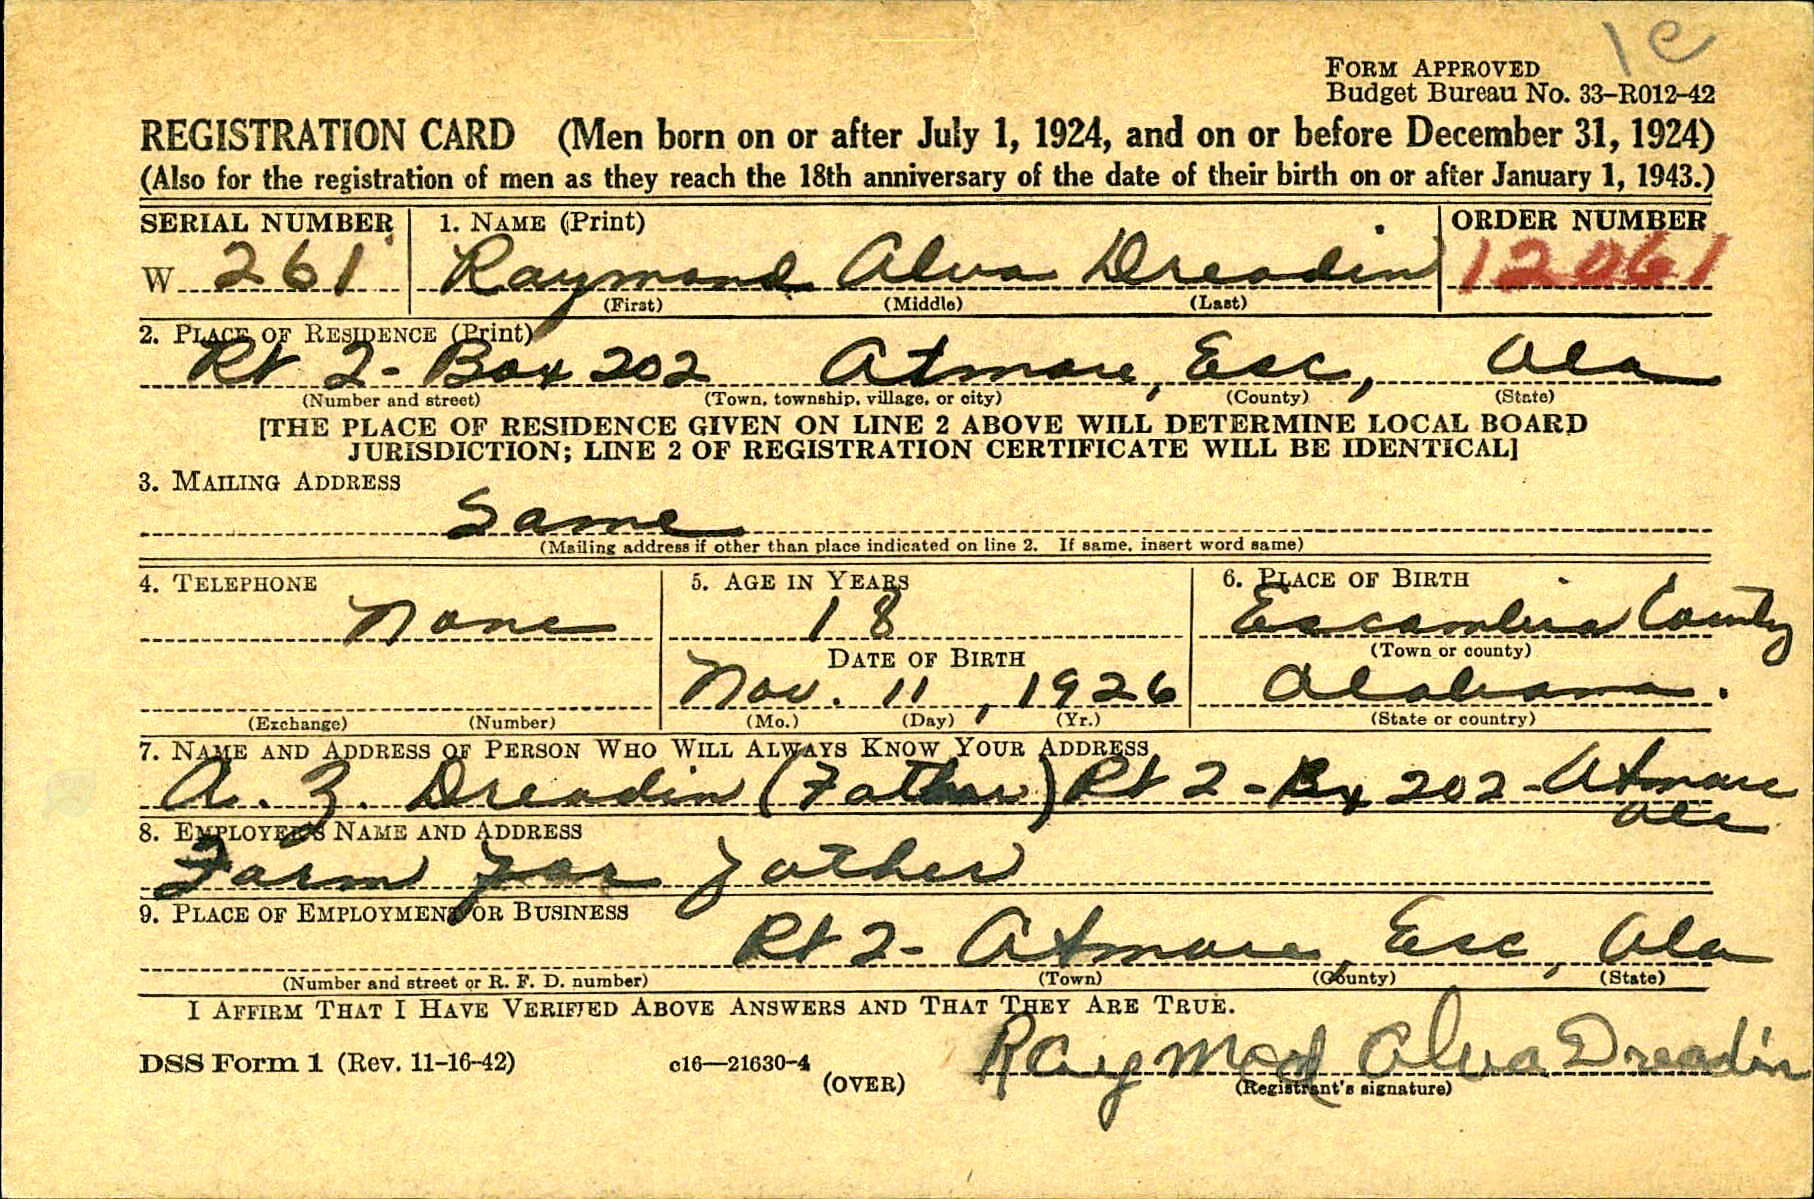 1C
FORM APPROVED
Budget Bureau No. 33–R012–42
REGISTRATION CARD (Men born on or after July 1, 1924, and on or before December 31, 1924)
(Also for the registration of men as they reach the 18th anniversary of the date of their birth on or after January 1, 1943.)
SERIAL NUMBER 1. NAME (Print) ORDER NUMBER
W 261 Raymond Alva Dreadin 12061
(First) (Middle) (Last)
2. PLACE OF RESIDENCE (Print)
Rt 2- Box 202 Atmore, Esc, Ala
(Number and street) (Town, township, village, or city) (County) (State)
[THE PLACE OF RESIDENCE GIVEN ON LINE 2 ABOVE WILL DETERMINE LOCAL BOARD
JURISDICTION; LINE 2 OF REGISTRATION CERTIFICATE WILL BE IDENTICAL]
3. MAILING ADDRESS
Same
(Mailing address if other than place indicated on line 2. If same, insert word same)
4. TELEPHONE 5. AGE IN YEARS 6. PLACE OF BIRTH
None 18 Escambia County
DATE OF BIRTH (Town or county)
Nov. 11, 1926 Alabama.
(Exchange) (Number) (Mo.) (Day) (Yr.) (State or country)
7. NAME AND ADDRESS OF PERSON WHO WILL ALWAYS KNOW YOUR ADDRESS
A. Z. Dreadin (Father) Rt 2 - Bx 202 - Atmore
Ala
8. EMPLOYER'S NAME AND ADDRESS
Farm for father
9. PLACE OF EMPLOYMENT OR BUSINESS
Rt 2- Atmore, Esc, Ala
(Number and street or R. F. D. number) (Town) (County) (State)
I AFFIRM THAT I HAVE VERIFIED ABOVE ANSWERS AND THAT THEY ARE TRUE.
DSS Form 1 (Rev. 11-16-42) c16—21630-4 Raymod Alva Dreadin
(OVER) (Registrant's signature)